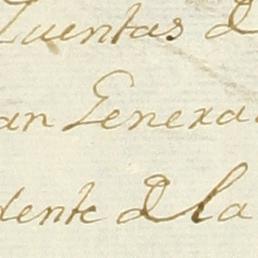 Cuentas d
an Genera
dente de la